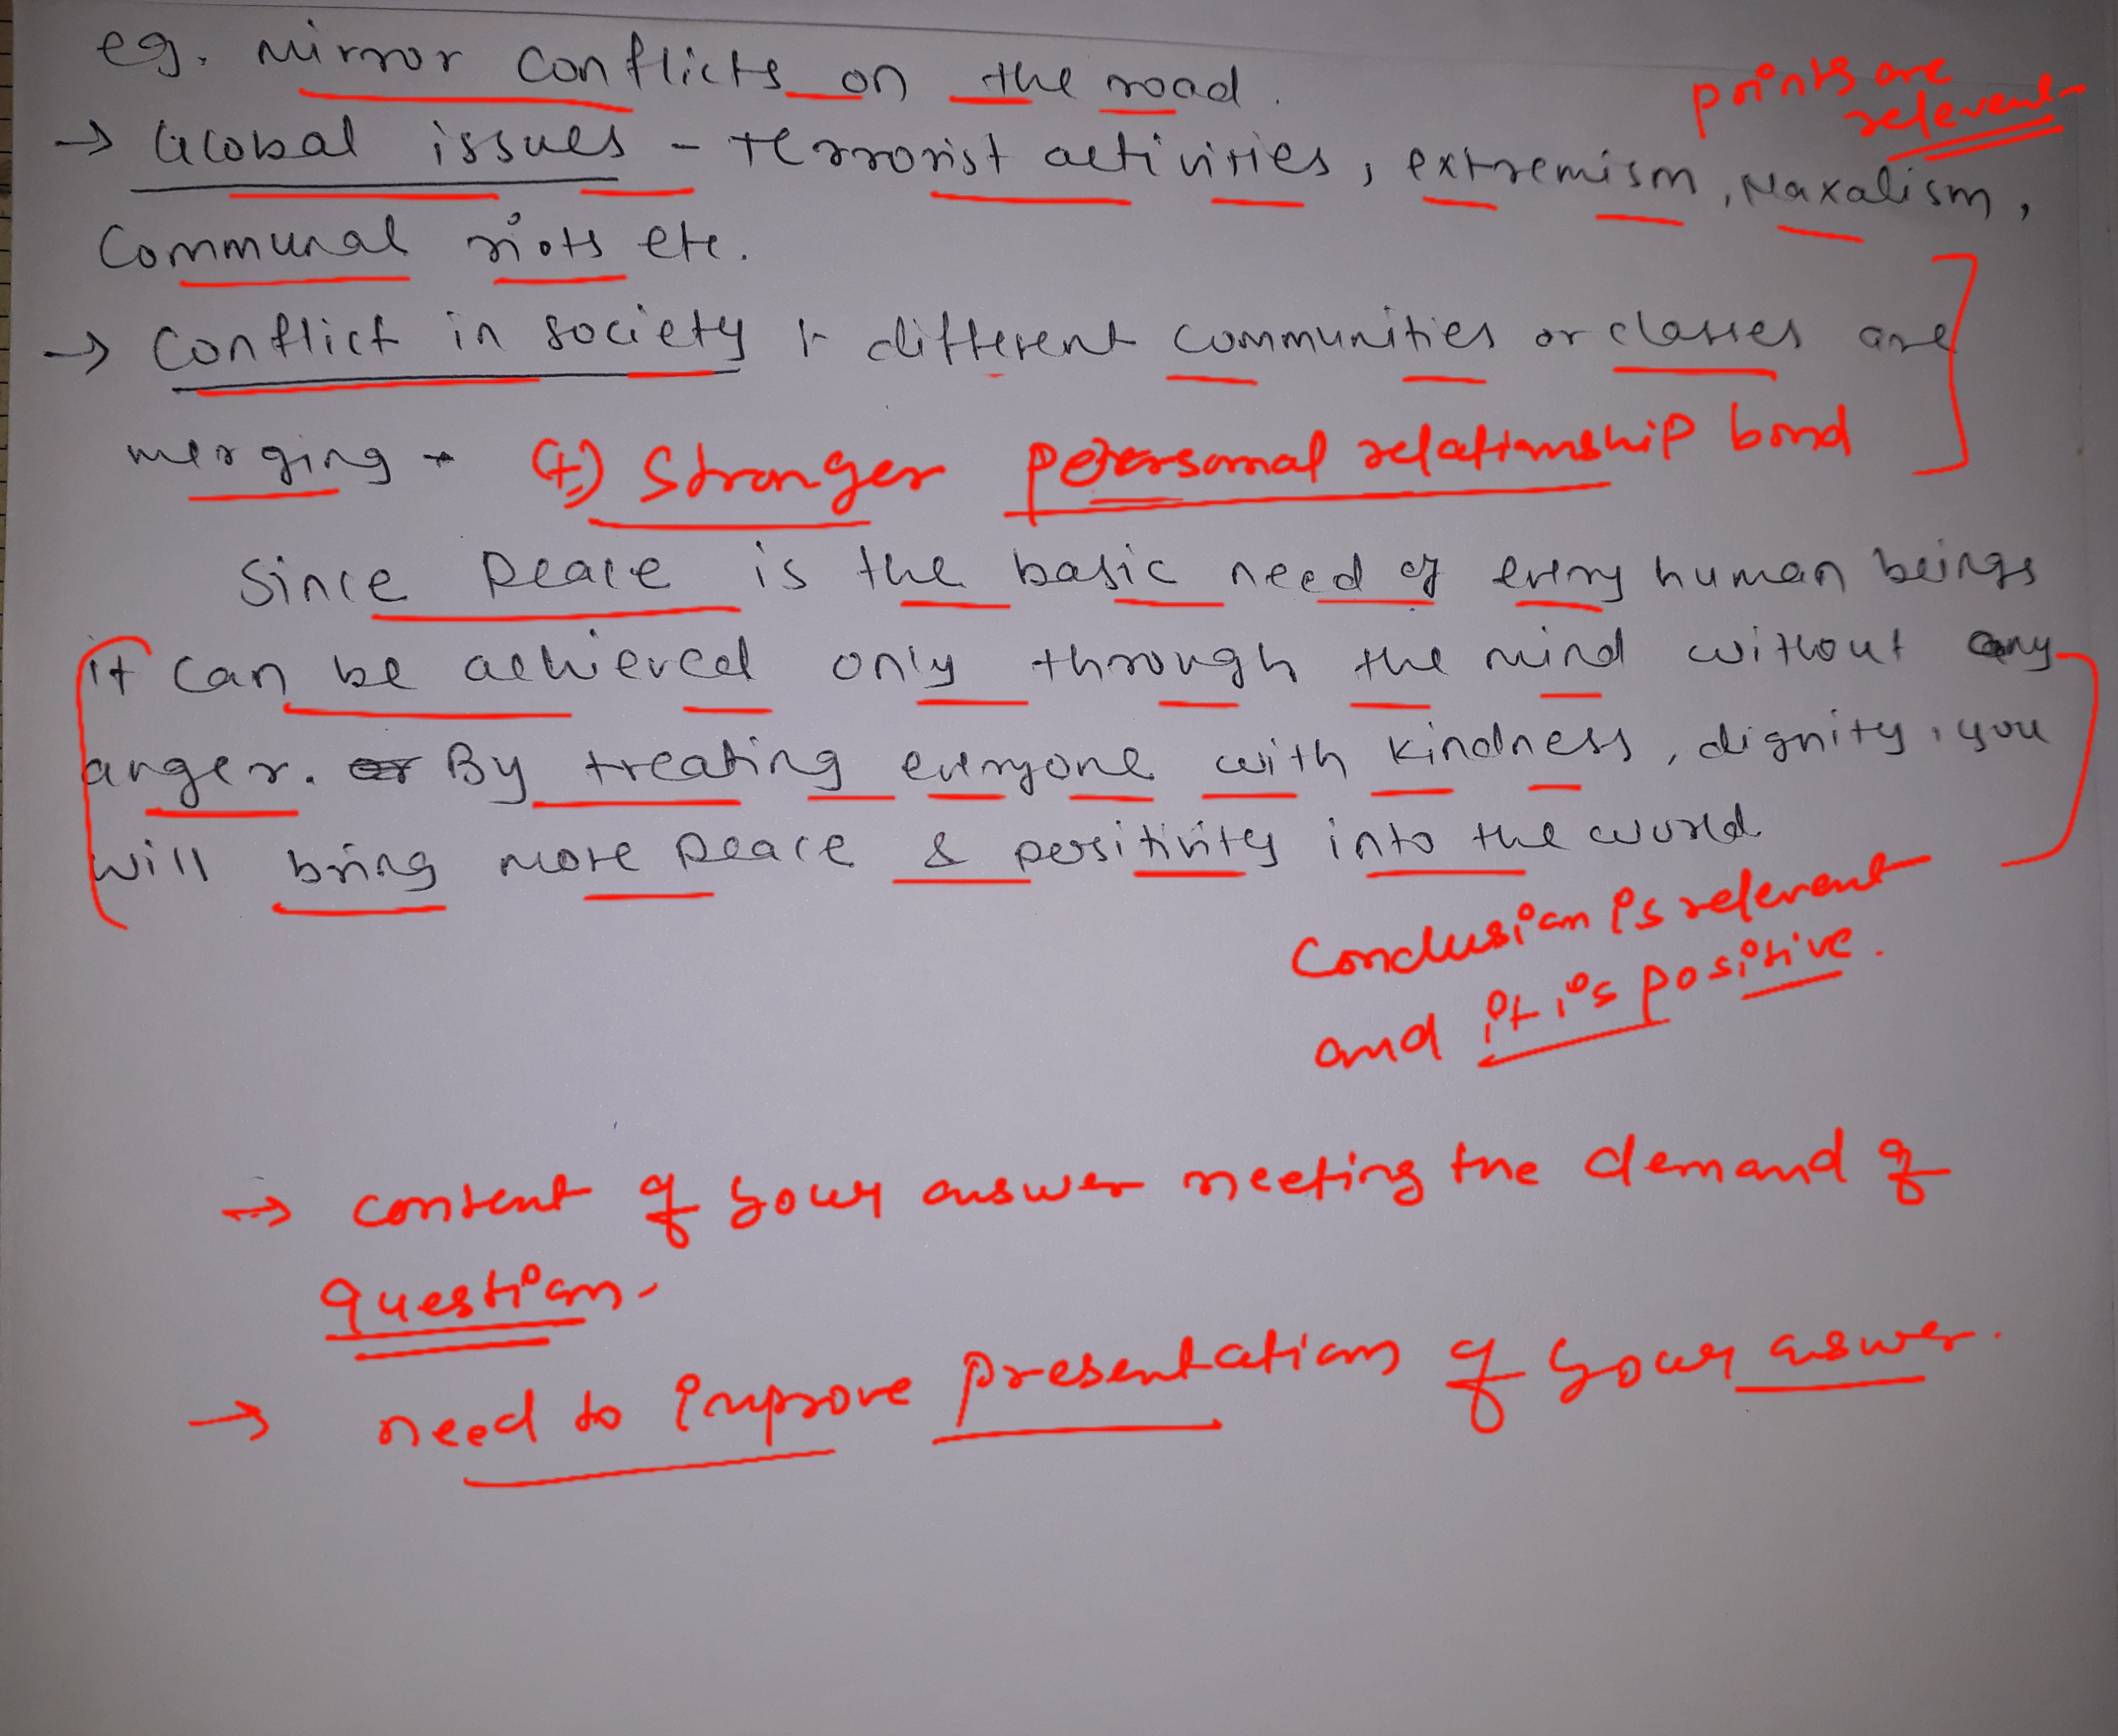 eg. mirror conflicts on the road.
points are
relevent
→ Global issues - terrorist activities, extremism, Naxalism,
Communal riots etc.
→ Conflict in society & different communities or classes are
merging → (+) Stronger personal relationship bond
Since peace is the basic need of every human beings
it can be achieved only through the mind without any
anger. By treating everyone with kindness, dignity, you
will bring more peace & positivity into the world
Conclusion is relevant
and it is positive.
→ content of your answer meeting the demand of
question.
→ need to improve presentation of your answer.